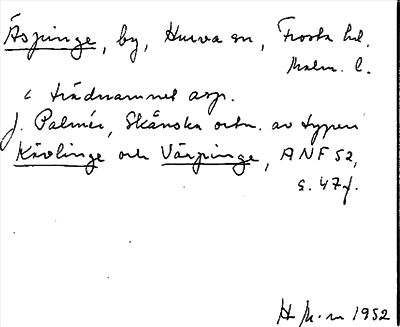 Äspinge, by, Hurva sn, Frosta hd.
Malm. l.
< trädnamnet asp.
J. Palmér, Skånska ortn. av typen
Kävlinge och Värpinge, ANF 52,
s. 47 f.
H M-n 1952